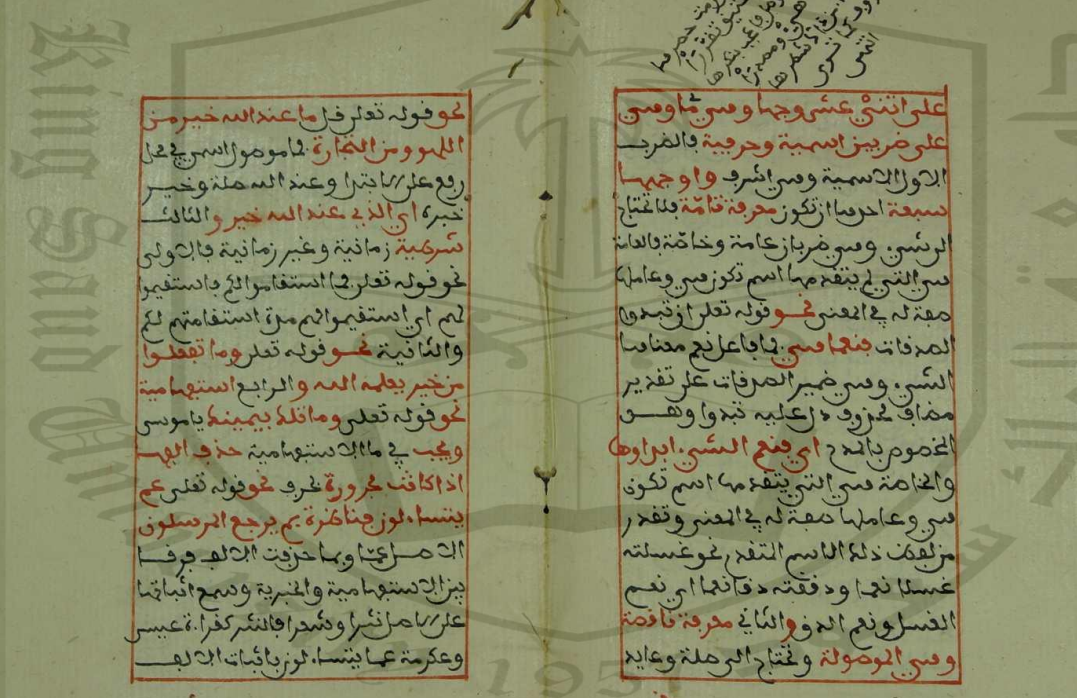 على اثني عشر وجها وهي ما وهي
على ضربين اسمية وحرفية فالضرب
الاول الاسمية وهي اشرف واوجهها
سبعة احدها ان تكون معرفة تامة فلا تحتاج
الى شيء وهي ضربان عامة وخاصة فالعامة
هي التي لم يتقدمها اسم تكون هي وعاملها
صفة له في المعنى نحو قوله تعلى ان تبدوا
الصدقات فنعما هي فما فاعل نعم معناها
الشيء وهي ضمير الصدقات على تقدير
مضاف محذوف دل عليه تبدوا وهــو
المخصوص بالمدح اي فنعم الشيء ابداوها
والخاصة هي التي يتقدمها اسم تكون
هي وعاملها صفة له في المعنى وتقدر
من لفظ ذلك الاسم المتقدم نحو غسلته
غسلا نعما ودققته دقا نعما اي نعم
الغسل ونعم الدق والثاني معرفة ناقصة
وهي الموصولة وتحتاج الى صلة وعايد
نحو قوله تعلى قل ما عند الله خير من
اللهو ومن التجارة فما موصول اسمي في محل
رفع على الابتدا وعند الله صلة وخيــر
خبره اي الذي عند الله خير والثالث
شرطية زمانية وغير زمانية فالاولى
نحو قوله تعلى فما استقاموا لكم فاستقيموا
لهم اي استقيموا لهم مدة استقامتهم لكم
والثانية نحــو قوله تعلى وما تفعلوا
من خير يعلمه الله والرابع استفهامية
نحو قوله تعلى وما تلك بيمينك يا موسى
ويجب في ما الاستفهامية حذف الفها
اذا كانت مجرورة بحرف نحو قوله تعلى عم
يتساءلون فناظرة بم يرجع المرسلون
الاصل عما وبما حذفت الالف فرقــا
بين الاستفهامية والخبرية وسمع اثباتها
على الاصل نثرا وشعرا فالنثر كقراءة عيسى
وعكرمة عما يتساءلون باثبات الالف